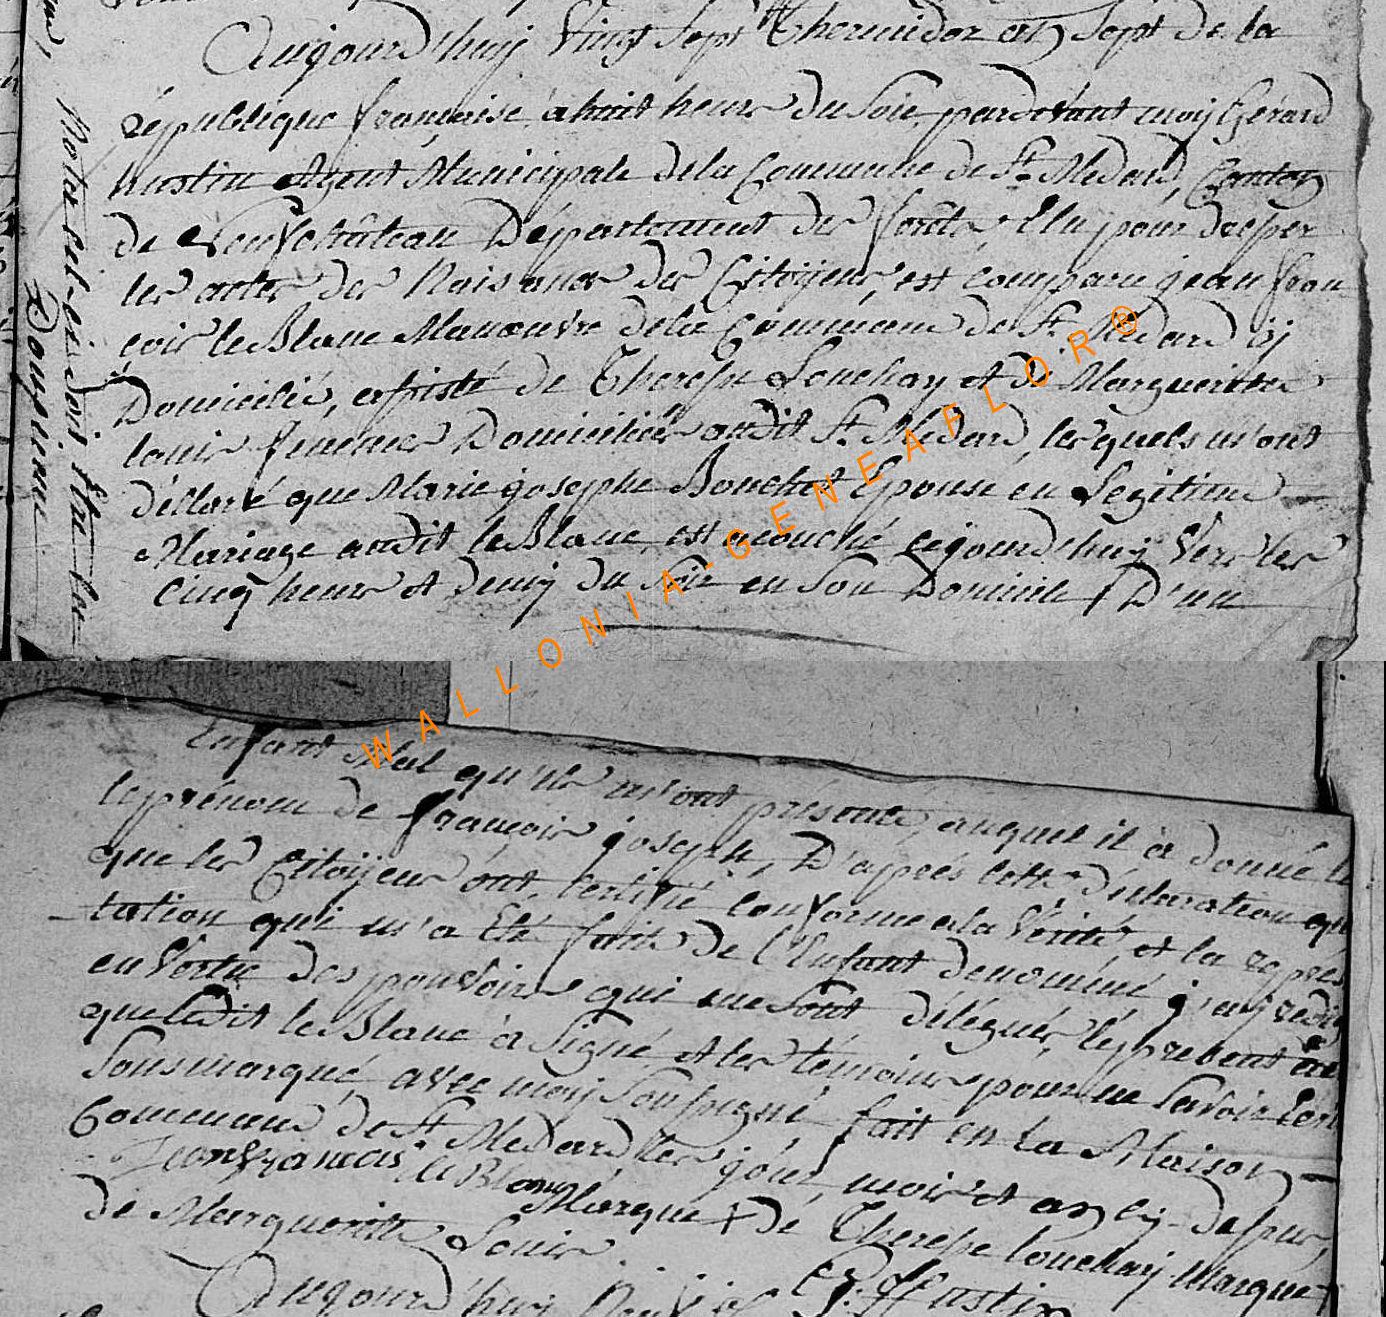 Aujourd'huij Vingt Sept Thermidor an Sept de la
république françaisse, a huit heur du Soir, pardevant moij Gérard
hustin Agent Municipale dela Commune de St. Medard, Canton
de Neufchâteau Département des forêts, Elu pour
les actes des Naisances des Citoijens, est comparu jean fran
cois le Blanc Manœuvre dela Commune de St. Medard ij
Domicilié, assisté de Therese Louchay et de Margueritte
louis femmes Domiciliés audit St. Medard, lesquels m'ont
déllaré que Marie josephe Bouchot Epouse en Legitime
Mariage audit le Blanc, est acouché cejourd'huij Vers les
cinq heurs et demij du Soir en Son Domicile, D'un
Nota cel-ci doit Etre la
Douzieme
Enfant Mal qu'ils m'ont présenté, auquel il à donné le
le prénom de françois joseph, D'aprés cette déclaration
que les Citoijens ont certifié conforme a la Vérité, et la repres
tation qui m'a Eté faite de l'Enfant denommé j'aij redig
en Vertu des pouvoirs qui me Sont délégués, le présent
que ledit le Blanc à Signé et les témoins pour ne Savoir
Sousmarqué, avec moij Soussigné, fait en la Maison
Commune de St. Medard les jour, mois et an cij-dessus,
Jean francois le Blanc Marque + de Therese louchaij Marque
de Margueritte Louis
G. Hustin
Aujourd'huij
WALLONIA-GENEAFLOR®